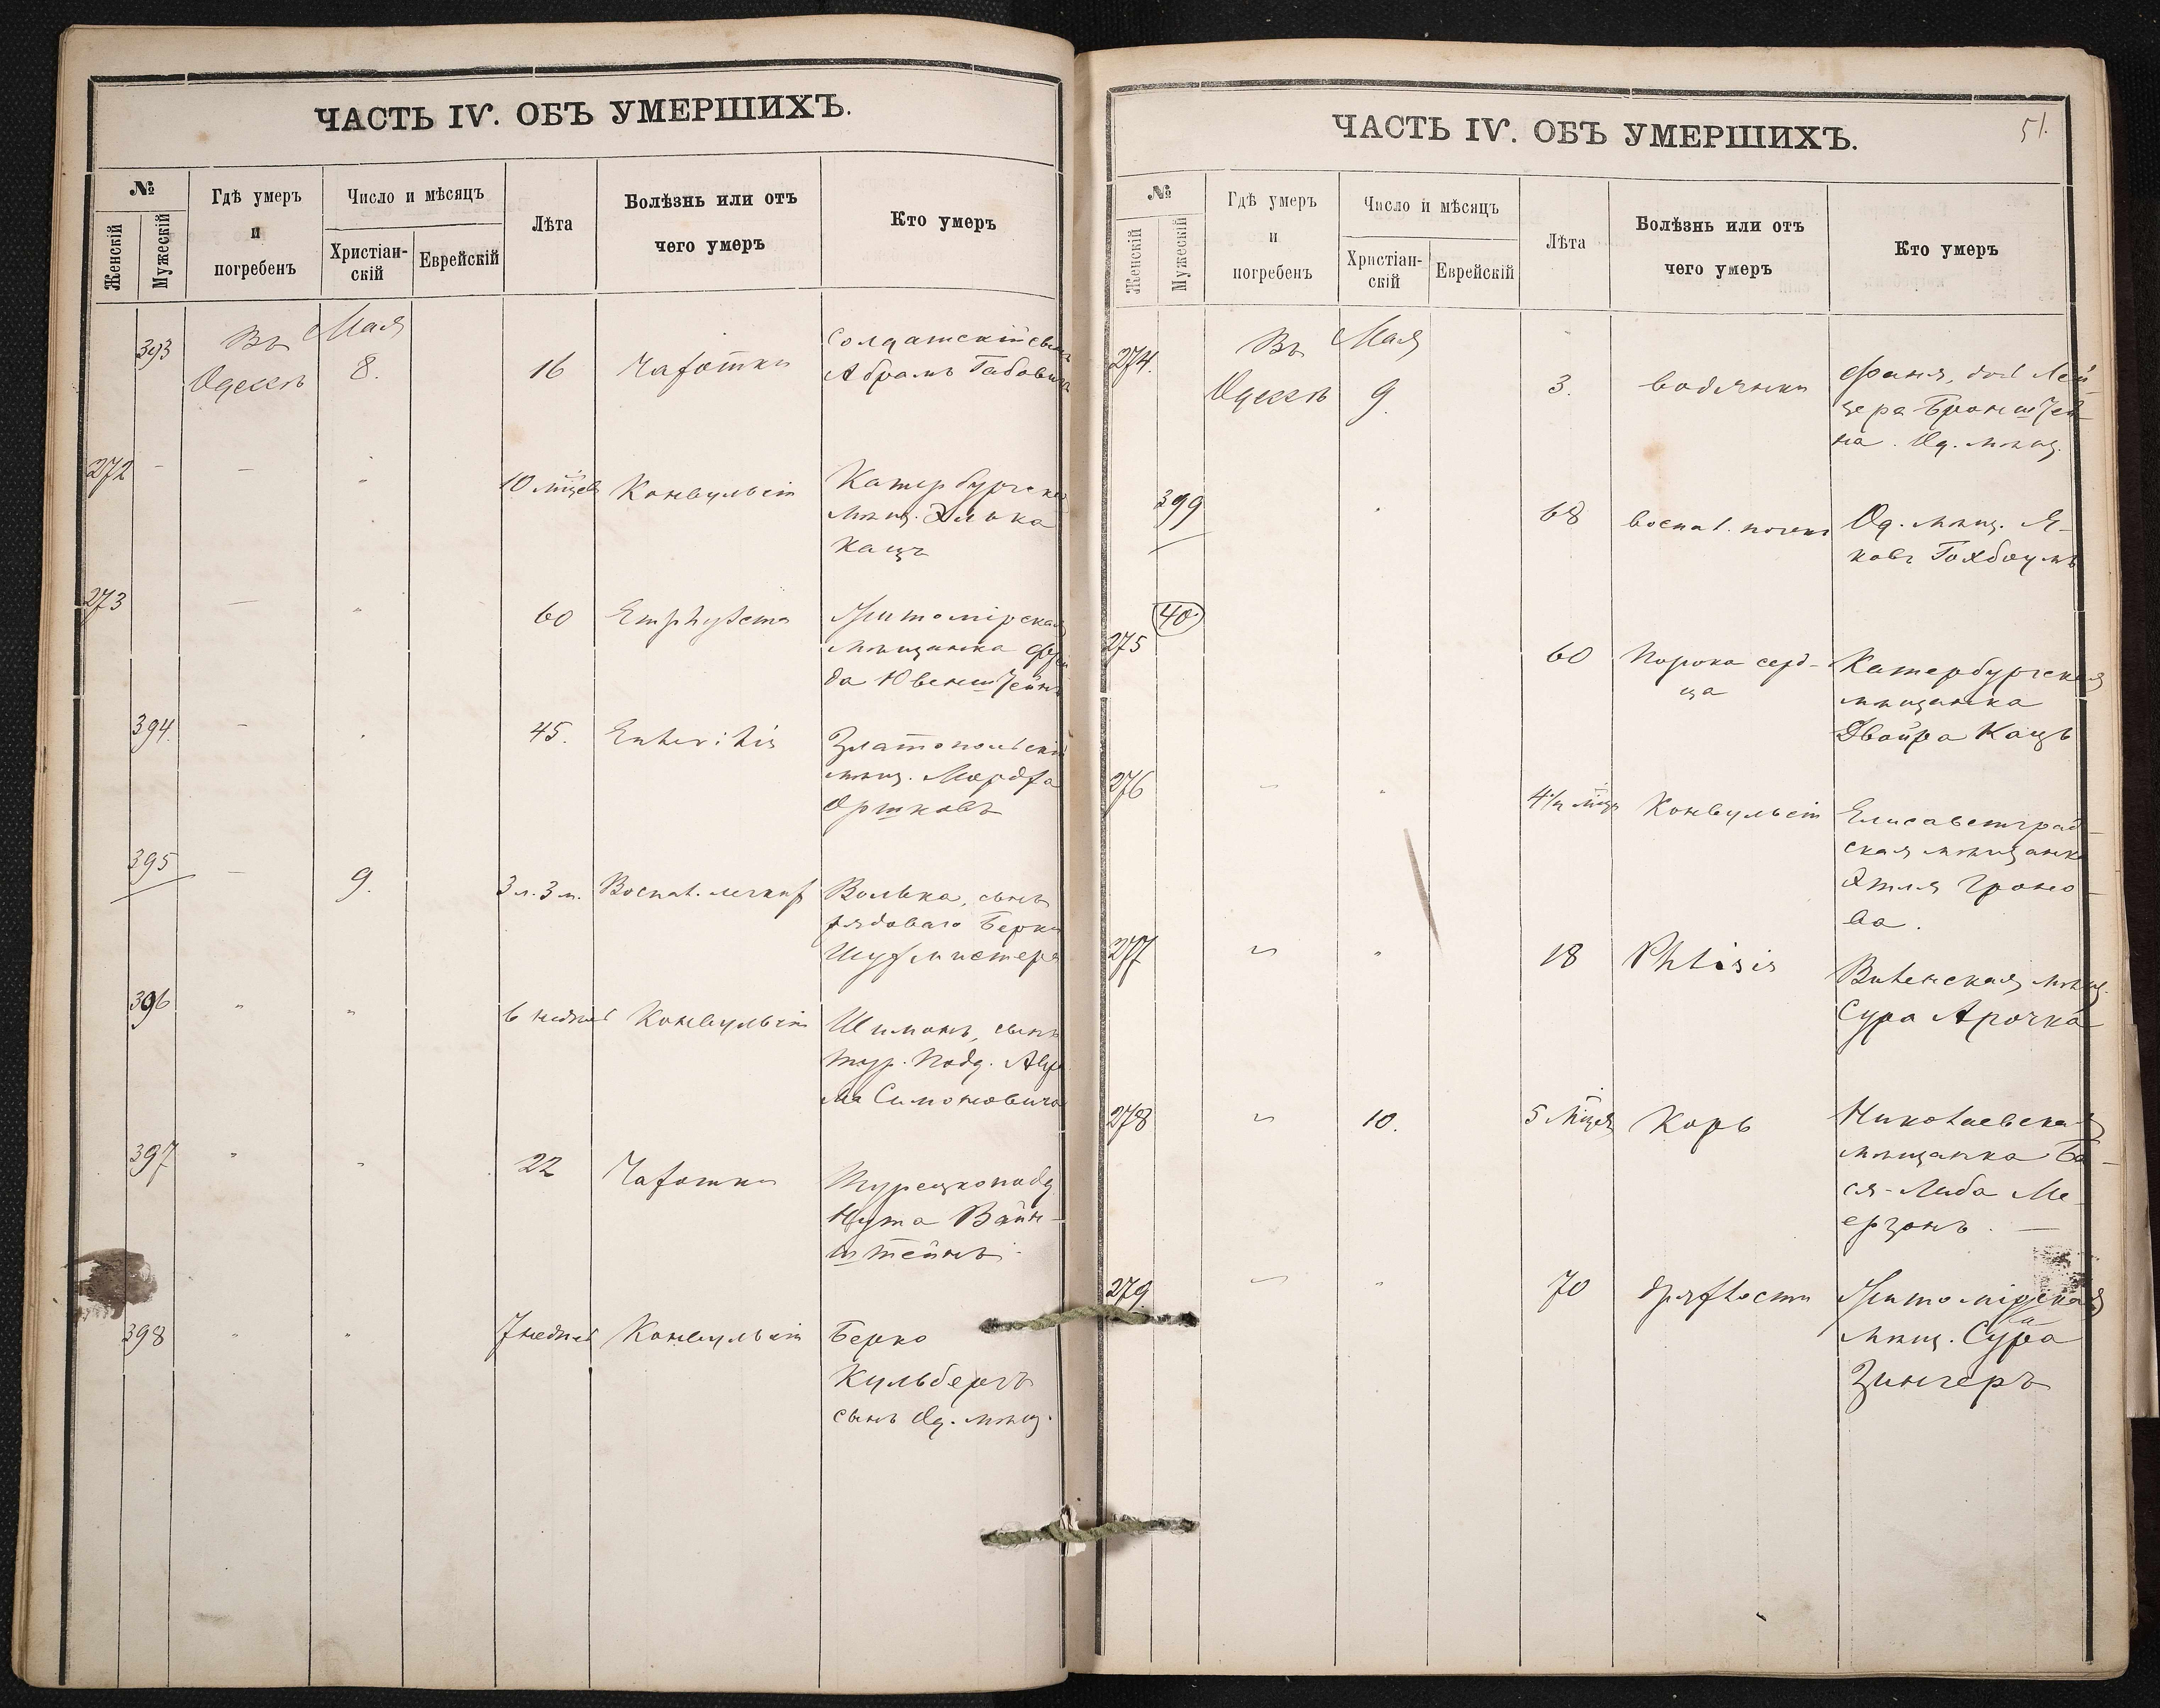 ЧАСТЬ IV. ОБЪ УМЕРШИХЪ.
№
Женскій
Мужескій
Гдѣ умеръ
и
погребенъ
Число и мѣсяцъ
Христіан-
скій
Еврейскій
Лѣта
Болѣзнь или отъ
чего умеръ
Кто умеръ
393
Въ
Одессѣ
Мая
8.
16
Чахотки
Солдатскій сынъ
Абрамъ
272
-
-
"
10 мѣцевъ
Конвульсіи
Катербургска
мѣщ. Элька
Кацъ
273
-
"
60
Emphysema
Житомірская
мѣщанка
да
394.
-
"
45.
Enteritis
Златопольскій
мѣщ. Мордха
Оршковъ
395
-
9.
3 л. 3 м.
Воспал. легкихъ
Волька, сынъ
рядоваго Берки
Шухмистера
396
"
"
6 недѣль
Конвульсіи
Шимонъ, сынъ
тур. подд.
ма Симоновича
397
"
"
22
Чахотки
Турецкоподд
Нута Вайн-
штейнъ.
398
"
"
7 недѣль
Конвульсіи
Берко
Кульбергъ
сынъ Од. мѣщ.
ЧАСТЬ IV. ОБЪ УМЕРШИХЪ.
51.
№
Женскій
Мужескій
Гдѣ умеръ
и
погребенъ
Число и мѣсяцъ
Христіан-
скій
Еврейскій
Лѣта
Болѣзнь или отъ
чего умеръ
Кто умеръ
274.
Въ
Одессѣ
Мая
9.
3.
водянки
Фаня, доч Лей-
зера Бронштей-
на. Од. мѣщ.
399
"
68
воспал. почекъ
Од. мѣщ. Я-
ковъ Гохбоумъ
40
275
60
Порока серд-
ца
Катербургская
мѣщанка
Двойра Кацъ
276
"
"
4½ мѣц
Конвульсіи
Елисаветград-
ская мѣщанка
Этля Гроно-
ва.
277
"
"
18
Phtisis
Виленская мѣщ.
Сура Арочка
278
"
10.
5 мѣцевъ
Корь
Николаевская
мѣщанка Ба-
ся-Либа Ме-
ерзонъ. -
279.
"
"
70
дряхлости
Житомірская
мѣщ. Сура
Зингеръ